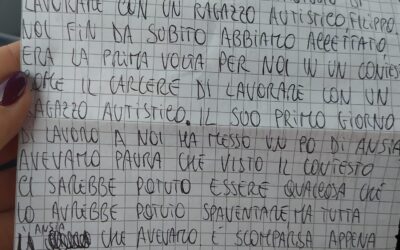 LAVORARE CON UN RAGAZZO AUTISTICO, FILIPPO.
NOI FIN DA SUBITO ABBIAMO ACCETTATO,
ERA LA PRIMA VOLTA PER NOI IN UN CONTES
COME IL CARCERE DI LAVORARE CON UN
RAGAZZO AUTISTICO. IL SUO PRIMO GIORNO
DI LAVORO A NOI HA MESSO UN PO DI ANSIA
AVEVAMO PAURA CHE VISTO IL CONTESTO
CI SAREBBE POTUTO ESSERE QUALCOSA CHE
LO AVREBBE POTUTO SPAVENTARE MA TUTTA
L'ANSIA CHE AVEVAMO È SCOMPARSA APPENA